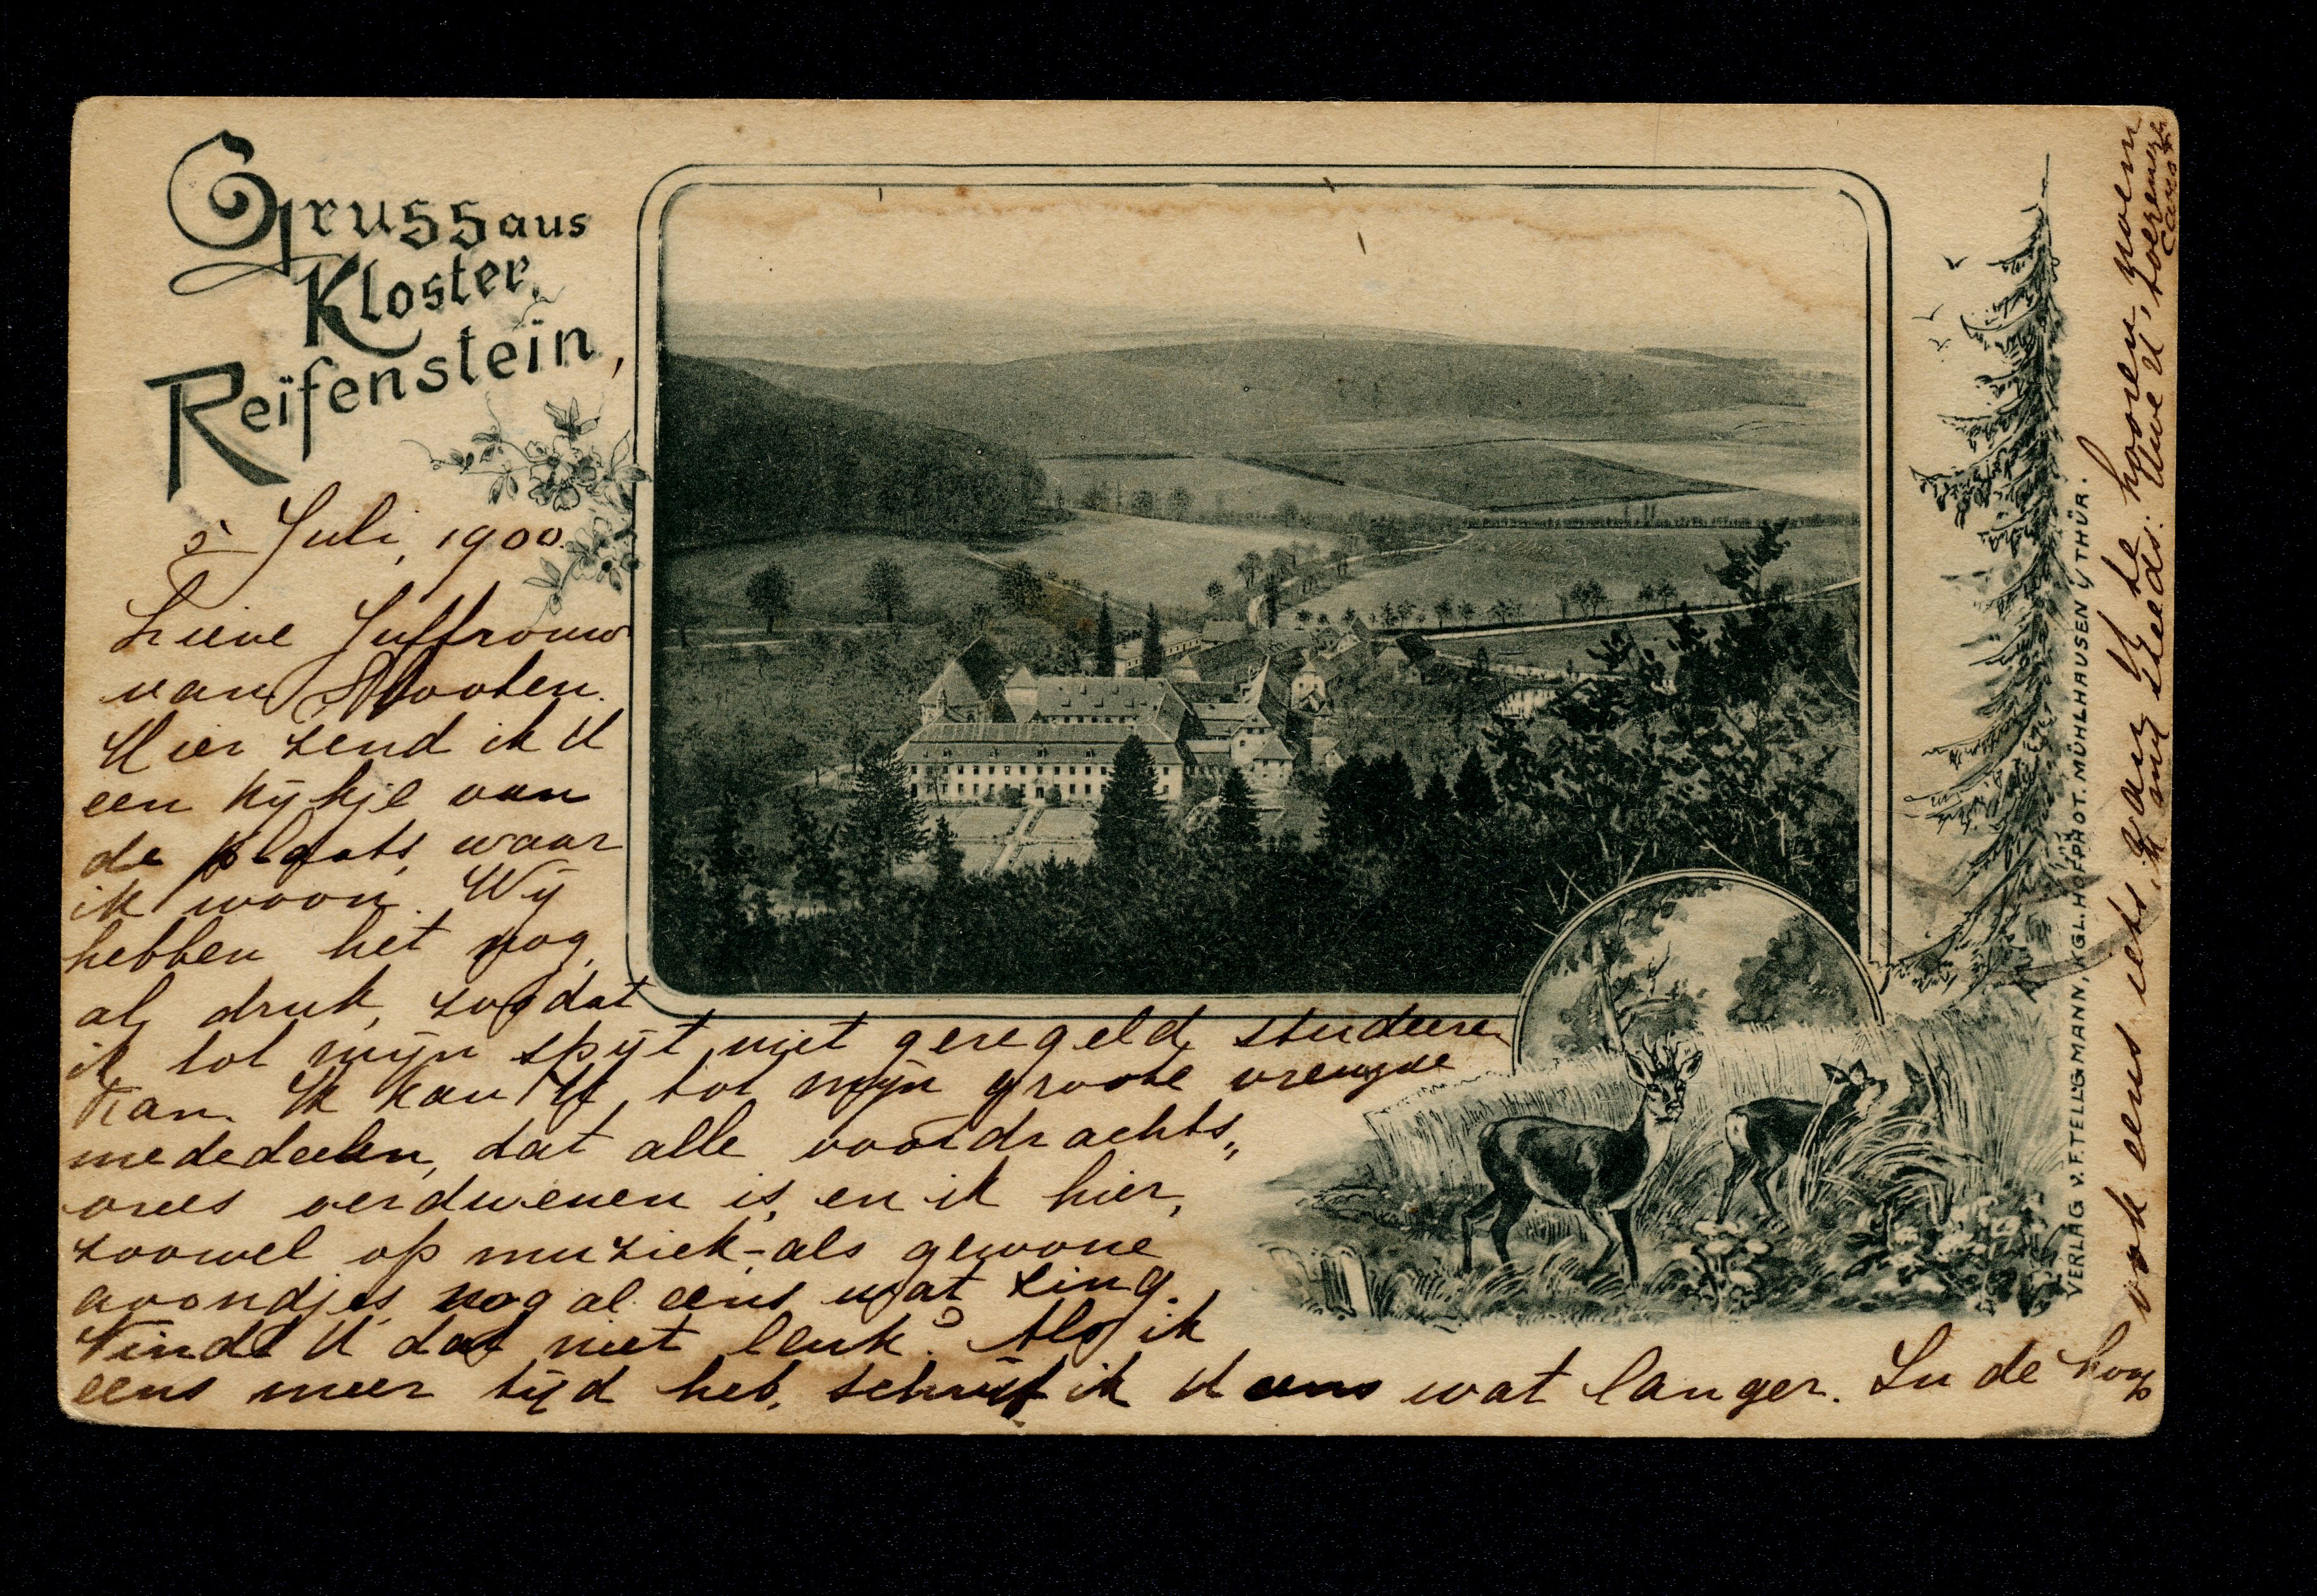 Gruss aus
Kloster
Reifenstein,
5 Juli, 1900.
Lieve Juffrouw
van Slooten.
Hier zend ik U
een kijkje van
de plaats, waar
ik woon. Wij
hebben het nog
al druk, zoodat
ik tot mijn spijt niet geregeld studeeren
kan. Ik kan U tot mijn groote vreugde
mededeelen, dat alle voordrachts„
vrees verdwenen is, en ik hier,
zoowel op muziek- als gewone
avondjes nog al eens wat zing.
Vindt U dat niet leuk? Als ik
eens meer tijd heb, schrijf ik U eens wat langer. In de hoop
ook eens iets van U te hooren, noem
ik mij steeds: Uwe U,
VERLAG v. F. TELLGMANN, KGL. HOFPHOT. MÜHLHAUSEN i/ THÜR.